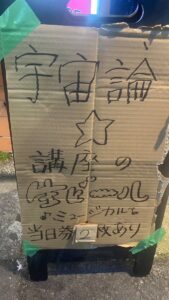 宇宙論
☆
講座の
生ビール
♪ミュージカルも
当日券2枚あり